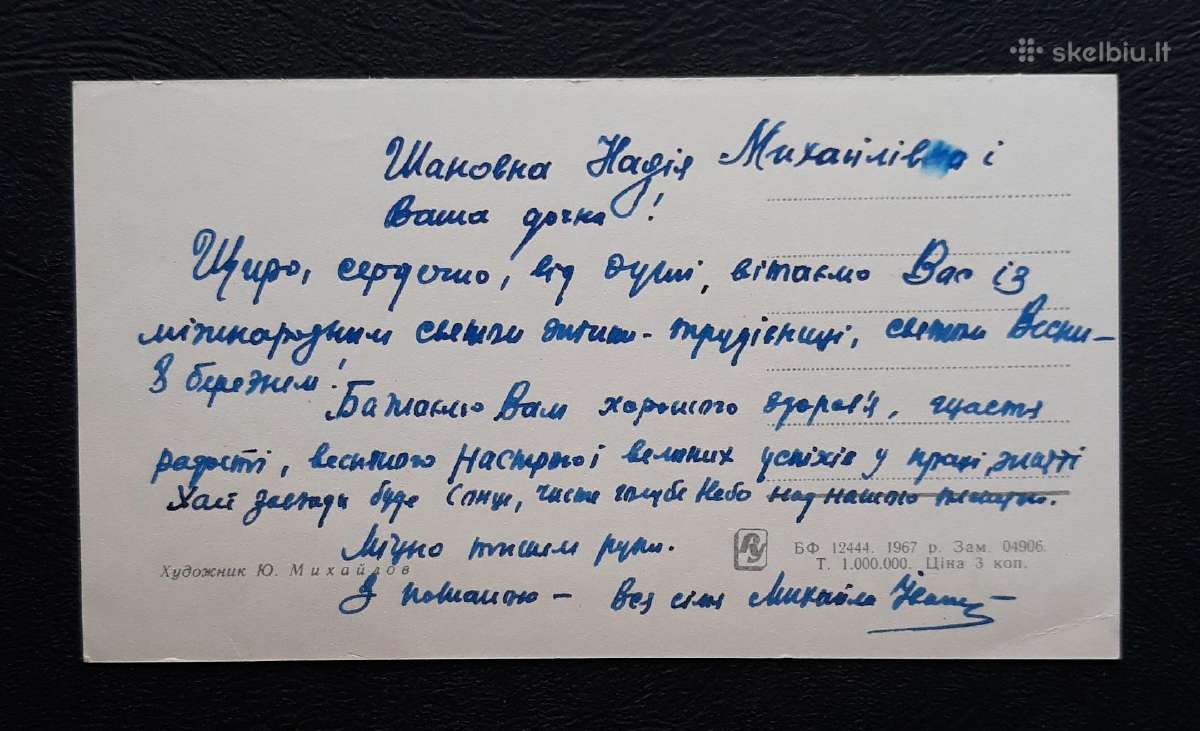 skelbiu.lt
Шановна Надія Михайлівна і
Ваша дочка!
Щиро, сердечно, від душі, вітаємо Вас із
міжнародним святом жінки-трудівниці, святом Весни –
8 березнем!
Бажаємо Вам хорошого здоров'я, щастя
радості, весняного настрою і великих успіхів у праці, житті
Хай завжди буде Сонце, чисте голубе небо над нашою планетою.
Міцно тиснем руки.
БФ 12444. 1967 р. Зам. 04906.
Т. 1.000.000. Ціна 3 коп.
Художник Ю. Михайлов
З пошаною – Вся сім'я Михайла